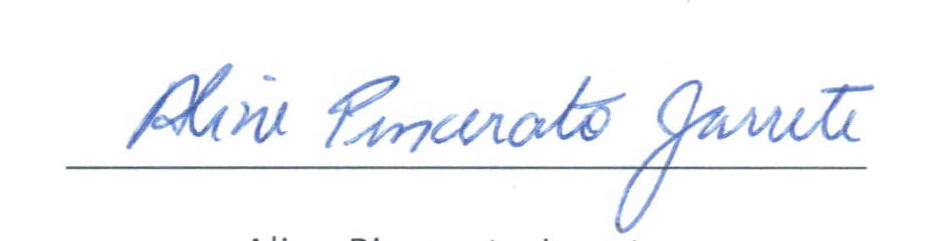 Aline Pincerato Jarrete